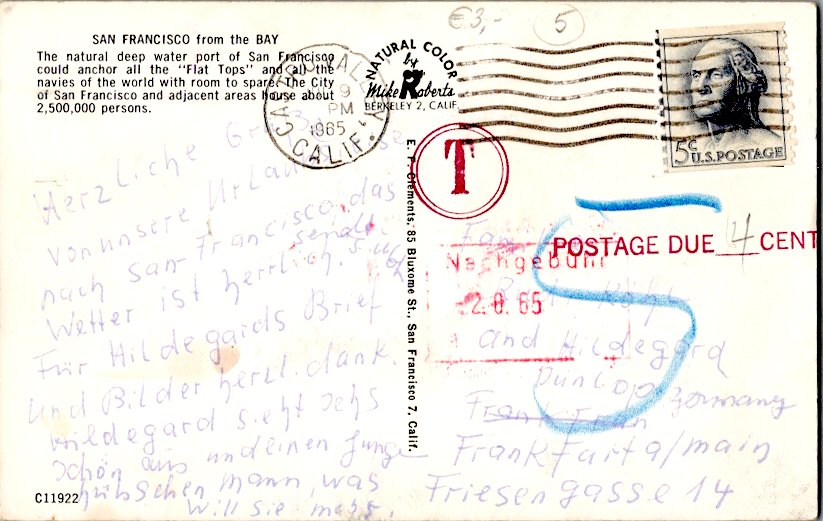 €3,- 5
SAN FRANCISCO from the BAY
The natural deep water port of San Francisco
could anchor all the "Flat Tops" and all the
navies of the world with room to spare. The City
of San Francisco and adjacent areas house about
2,500,000 persons.
NATURAL COLOR
by
Mike Roberts
BERKELEY 2, CALIF.
9
PM
1965
CALIF.
5c U.S. POSTAGE
T
E. F. Clements, 85 Bluxome St., San Francisco 7, Calif.
Herzliche
von unsere Urlaub
nach San-Francisco, das
Wetter ist herrlich.
Für Hildegards Brief
und Bilder herzl. dank.
Hildegard sieht
schön aus und einen
hübschen mann, was
will sie mehr.
POSTAGE DUE 4 CENT
Nachgebühr
2.8.65
5
and Hildegard
Dunlop Germany
Frankfurt a/main
Friesengasse 14
C11922